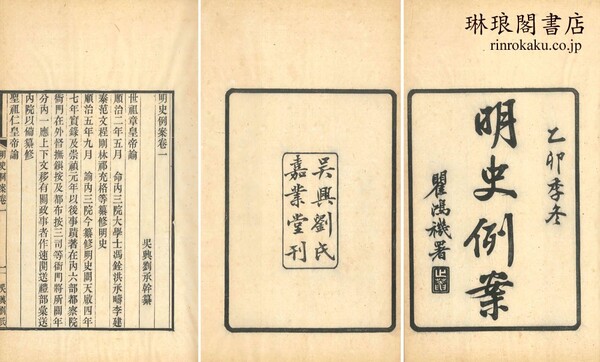 琳琅閣書店
rinrokaku.co.jp
乙卯季冬
明史例案
瞿鴻禨署
吳興劉氏
嘉業堂刊
明史例案卷一
吳興劉承幹纂
世祖章皇帝諭
順治二年五月 命內三院大學士馮銓洪承疇李建
泰范文程剛林祁充格等纂修明史
順治五年九月 諭內三院今纂修明史闕天啟四年
七年實錄及崇禎元年以後事蹟著在內六部都察院
衙門在外督撫鎮按及都布按三司等衙門將所闕年
分內一應上下文移有關政事者作速開送禮部彙送
內院以備纂修
聖祖仁皇帝諭
明史例案卷一
一